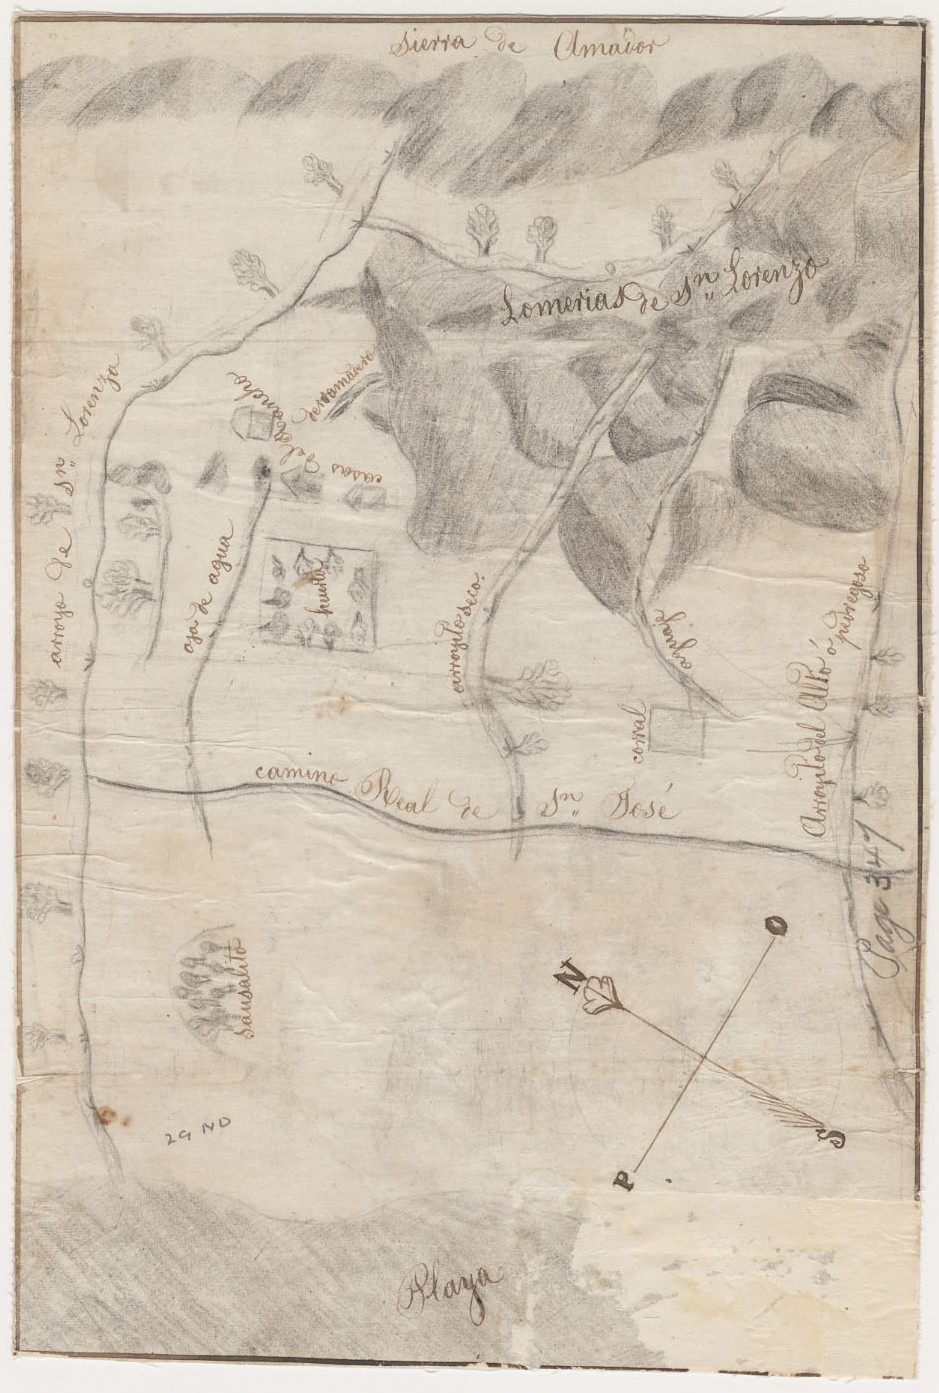 Sierra de Amador
Lomerias de Sn. Lorenzo
arroyo de Sn. Lorenzo
casas del rancho
derramadero
ojo de agua
huerta
arroyito seco.
aguaje
corral
Arroyito del Alto ó
pedregoso
camino Real de Sn. José
Page 347
Sausalito
N
O
S
P
29 ND
Playa